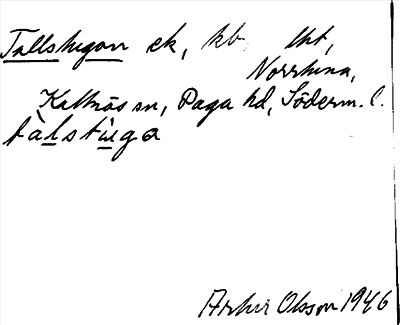 Tallstugan ek, kb lht,
Norrhina,
Kattnäs sn, Daga hd, Söderm. l.
tàlstùga
Artur Olsson 1946